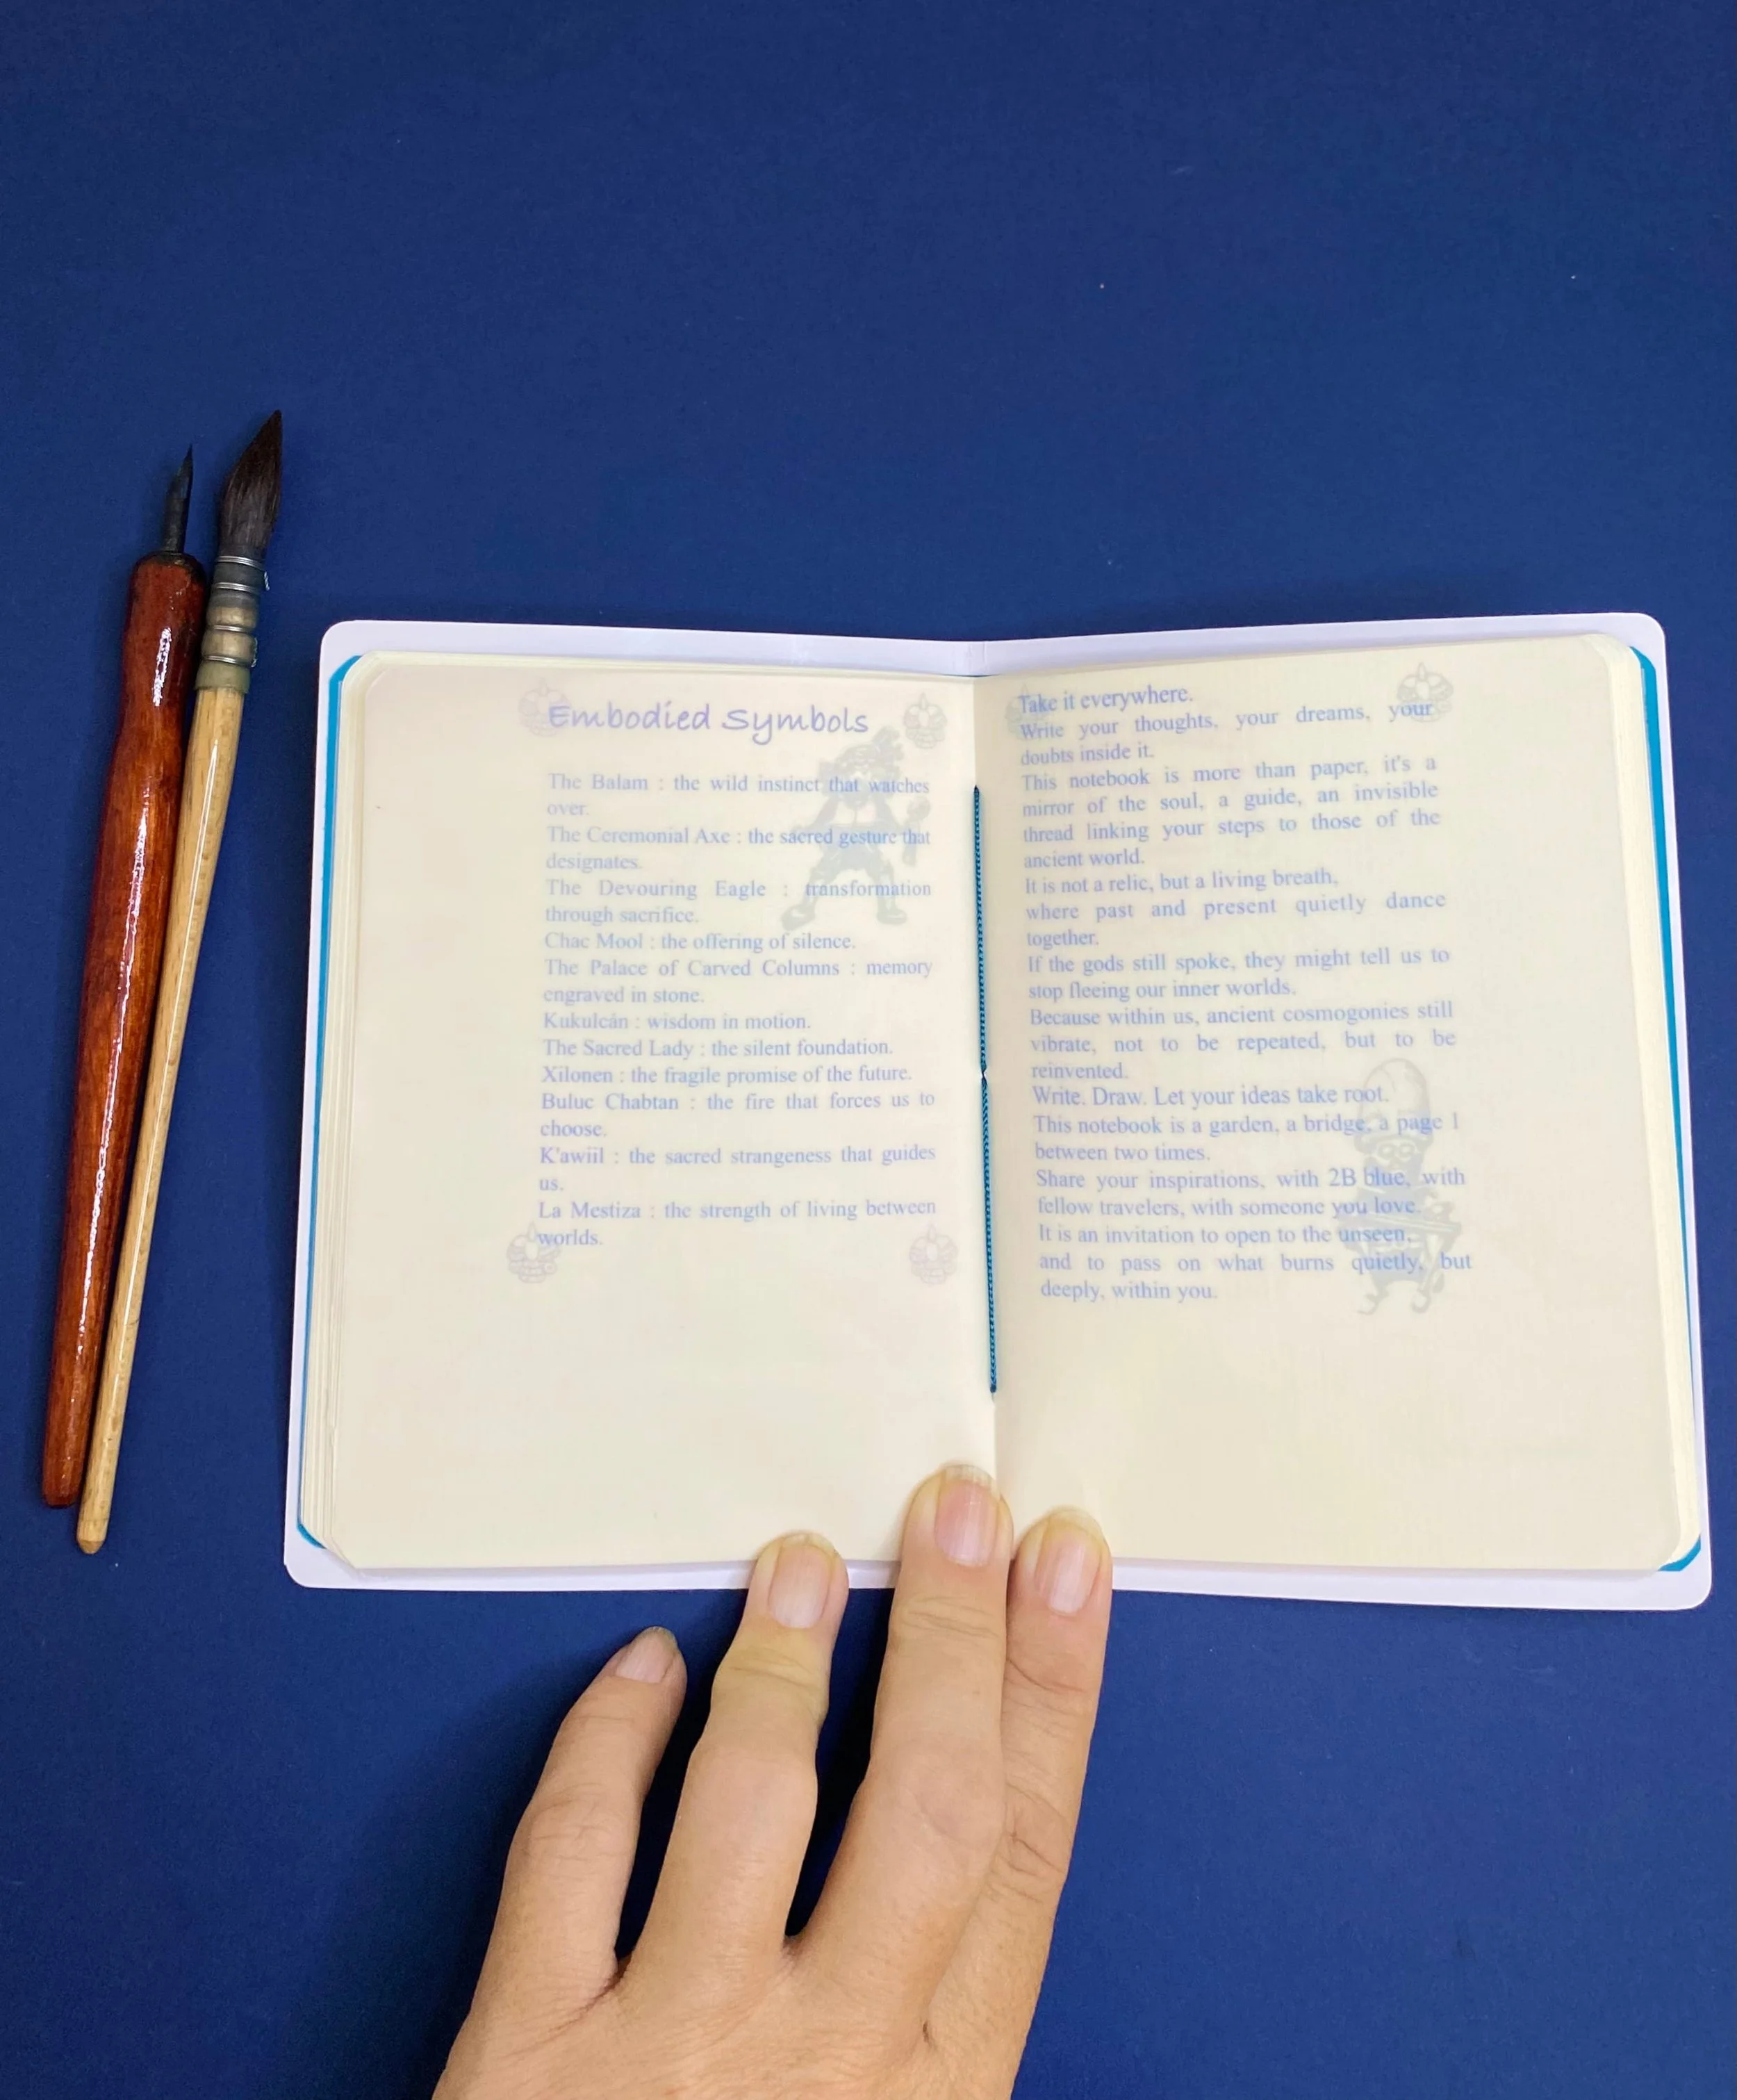 Embodied Symbols
The Balam : the wild instinct that watches
over.
The Ceremonial Axe : the sacred gesture that
designates.
The Devouring Eagle : transformation
through sacrifice.
Chac Mool : the offering of silence.
The Palace of Carved Columns : memory
engraved in stone.
Kukulcán : wisdom in motion.
The Sacred Lady : the silent foundation.
Xilonen : the fragile promise of the future.
Buluc Chabtan : the fire that forces us to
choose.
K'awiil : the sacred strangeness that guides
us.
La Mestiza : the strength of living between
worlds.
Take it everywhere.
Write your thoughts, your dreams, your
doubts inside it.
This notebook is more than paper, it's a
mirror of the soul, a guide, an invisible
thread linking your steps to those of the
ancient world.
It is not a relic, but a living breath,
where past and present quietly dance
together.
If the gods still spoke, they might tell us to
stop fleeing our inner worlds.
Because within us, ancient cosmogonies still
vibrate, not to be repeated, but to be
reinvented.
Write. Draw. Let your ideas take root.
This notebook is a garden, a bridge, a page 1
between two times.
Share your inspirations, with 2B blue, with
fellow travelers, with someone you love.
It is an invitation to open to the unseen,
and to pass on what burns quietly, but
deeply, within you.